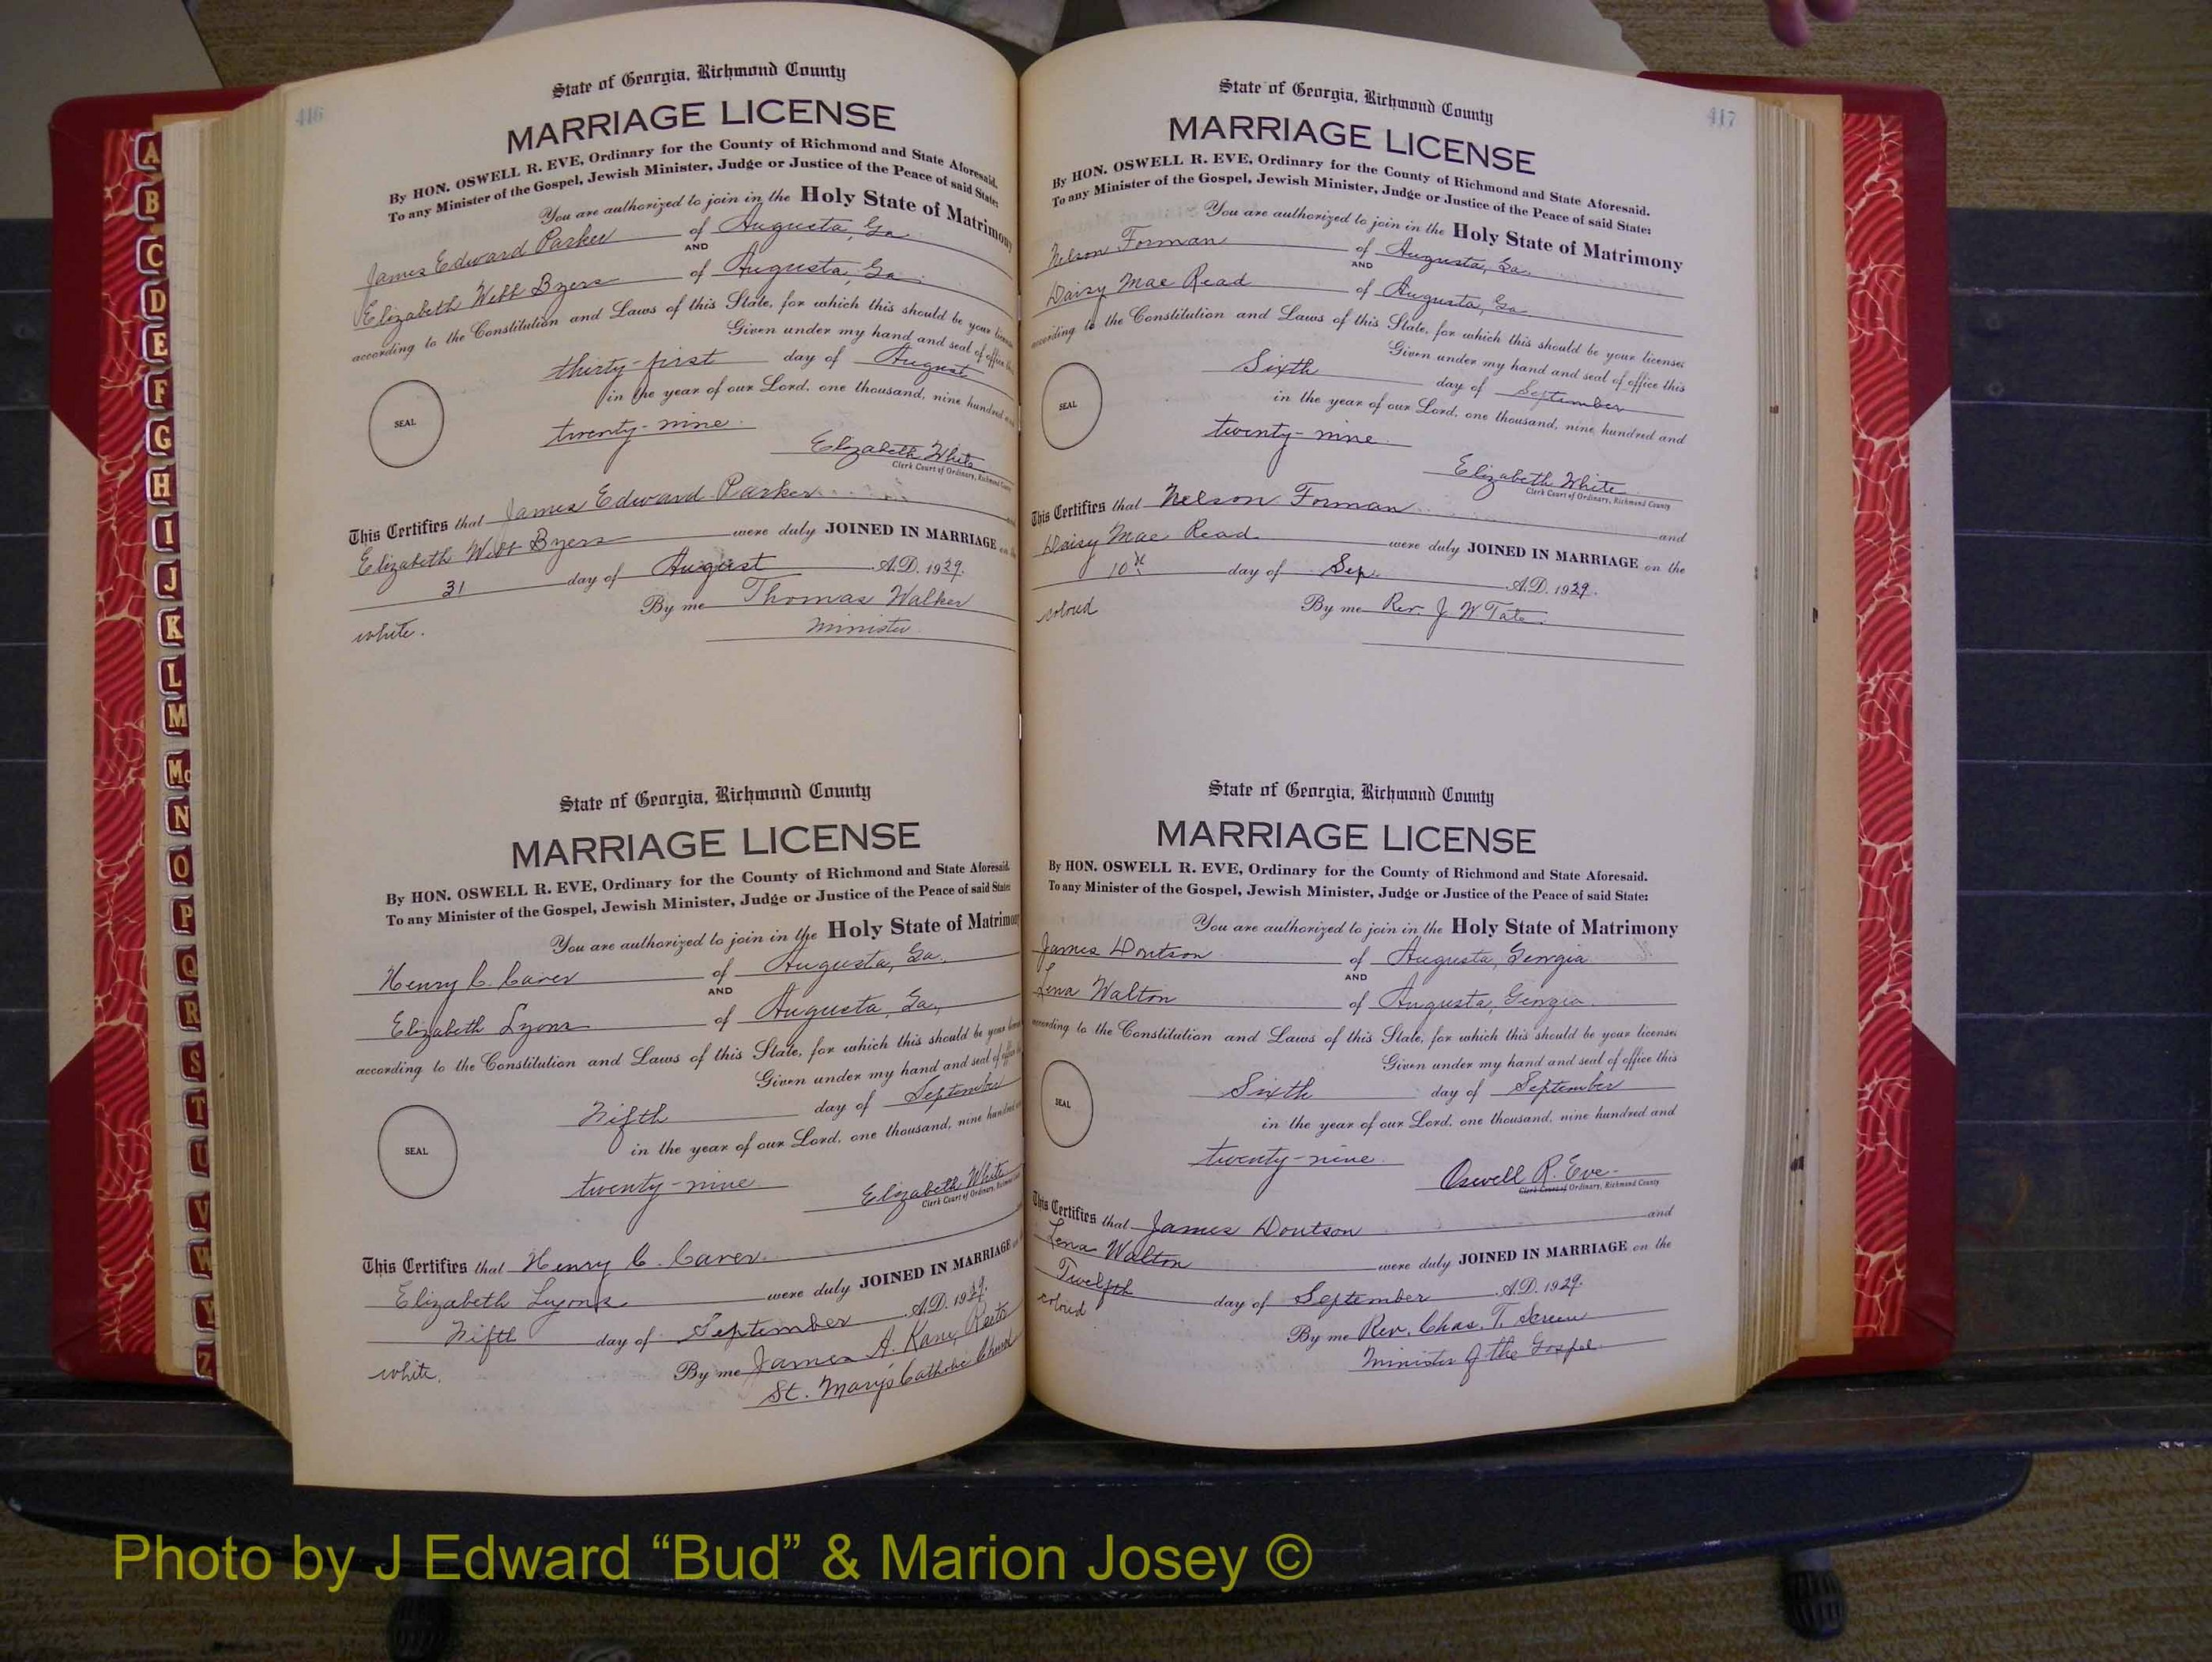 416
State of Georgia, Richmond County
MARRIAGE LICENSE
By HON. OSWELL R. EVE, Ordinary for the County of Richmond and State Aforesaid.
To any Minister of the Gospel, Jewish Minister, Judge or Justice of the Peace of said State:
You are authorized to join in the Holy State of Matrimony
James Edward Parker of Augusta, Ga.
AND
Elizabeth Webb Byers of Augusta, Ga.
according to the Constitution and Laws of this State, for which this should be your license
Given under my hand and seal of office
thirty-first day of August
in the year of our Lord, one thousand, nine hundred
SEAL
twenty-nine
Elizabeth White
Clerk Court of Ordinary, Richmond County
This Certifies that James Edward Parker
Elizabeth Webb Byers were duly JOINED IN MARRIAGE
31 day of August A.D. 1929.
By me Thomas Walker
white. Minister
State of Georgia, Richmond County
MARRIAGE LICENSE
By HON. OSWELL R. EVE, Ordinary for the County of Richmond and State Aforesaid.
To any Minister of the Gospel, Jewish Minister, Judge or Justice of the Peace of said State:
You are authorized to join in the Holy State of Matrimony
Henry C. Carer of Augusta, Ga.
AND
Elizabeth Lyons of Augusta, Ga.,
according to the Constitution and Laws of this State, for which this should be your
Given under my hand and seal of
Fifth day of September
in the year of our Lord, one thousand, nine hundred
SEAL
twenty-nine
Elizabeth White
Clerk Court of Ordinary, Richmond
This Certifies that Henry C. Carer.
Elizabeth Lyons were duly JOINED IN MARRIAGE
Fifth day of September A.D. 1929.
By me James A. Kane,
white. St. Mary's Catholic Church
417
State of Georgia, Richmond County
MARRIAGE LICENSE
By HON. OSWELL R. EVE, Ordinary for the County of Richmond and State Aforesaid.
To any Minister of the Gospel, Jewish Minister, Judge or Justice of the Peace of said State:
You are authorized to join in the Holy State of Matrimony
Nelson Forman of Augusta, Ga.
AND
Daisy Mae Read of Augusta, Ga.
according to the Constitution and Laws of this State, for which this should be your license:
Given under my hand and seal of office this
Sixth day of September
in the year of our Lord, one thousand, nine hundred and
SEAL
twenty-nine
Elizabeth White
Clerk Court of Ordinary, Richmond County
This Certifies that Nelson Forman and
Daisy Mae Read were duly JOINED IN MARRIAGE on the
10th day of Sep. A.D. 1929.
colored By me Rev. J. W. Tate
State of Georgia, Richmond County
MARRIAGE LICENSE
By HON. OSWELL R. EVE, Ordinary for the County of Richmond and State Aforesaid.
To any Minister of the Gospel, Jewish Minister, Judge or Justice of the Peace of said State:
You are authorized to join in the Holy State of Matrimony
James Doutson of Augusta, Georgia
AND
Lena Walton of Augusta, Georgia
according to the Constitution and Laws of this State, for which this should be your license:
Given under my hand and seal of office this
Sixth day of September
in the year of our Lord, one thousand, nine hundred and
SEAL
twenty-nine
Oswell R. Eve
Clerk Court of Ordinary, Richmond County
This Certifies that James Doutson and
Lena Walton were duly JOINED IN MARRIAGE on the
Twelfth day of September A.D. 1929.
colored By me Rev. Chas. T. Screen
Minister of the Gospel
A
B
C
D
E
F
G
H
I
J
K
L
M
Mc
N
O
P
Q
R
S
T
U
V
W
Y
Z
Photo by J Edward “Bud” & Marion Josey ©